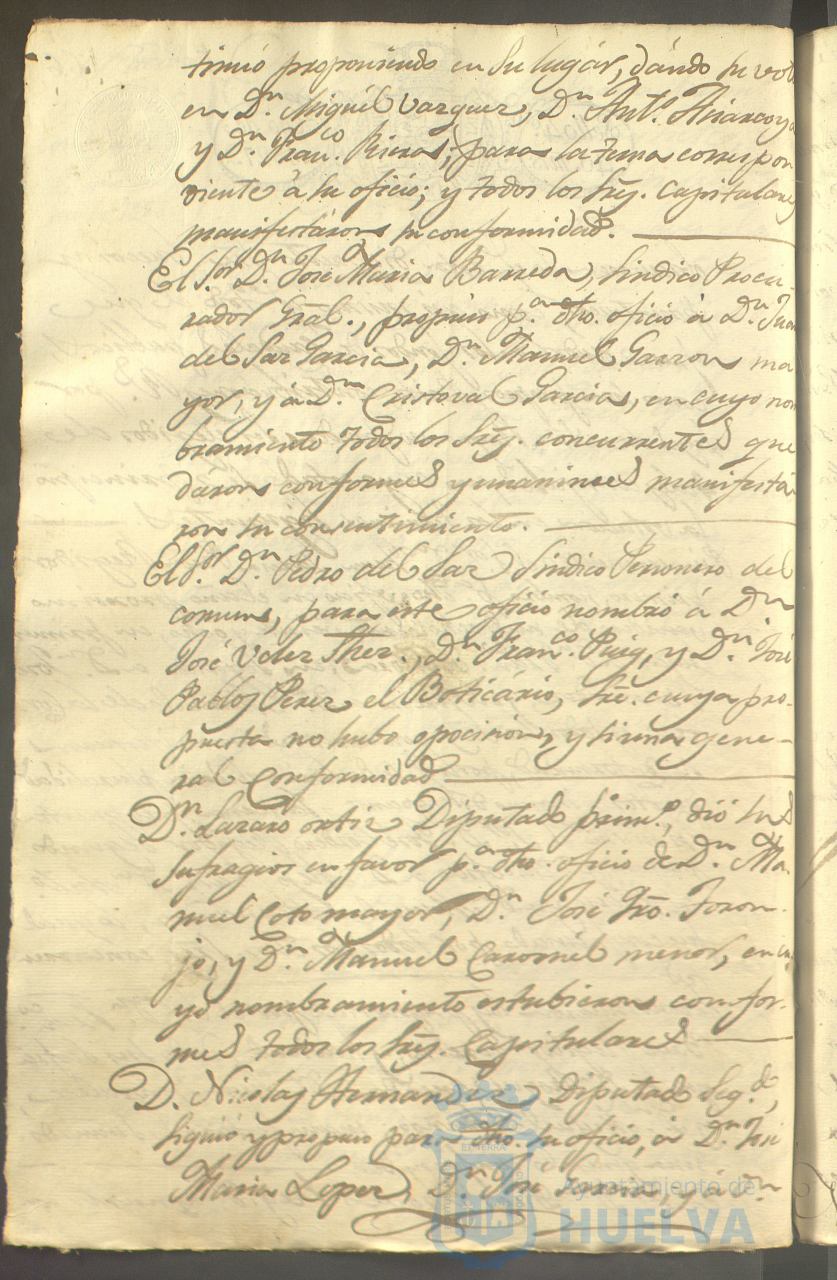 tinuó proponiendo en su lugár, dándo su voto
en Dn. Miguél Vazquez, Dn. Anto.
y Dn. Franco. Riera, para la terna correspon
diente á su oficio; y todos los Srs. Capitulares
manifestáron su conformidad.
El Sor. Dn. José Maria Barreda, Sindico Procu-
rador Gral., propuso pa. dho. oficio á Dn. Juan
del Saz Garcia, Dn. Manuel Garzon ma
yor, y á Dn. Cristoval Garcia, en cuyo nom
bramiento todos los Srs. concurrentes que
daron conformes y unanimes manifestá
ron su consentimiento.
El Sor. Dn. Pedro del Saz Sindico Personero del
comun, para este oficio nombró á Dn.
José Velez, Dn. Franco. Puig, y Dn. José
Pablos Perez el Boticário, sre. cuya pro-
puesta no hubo oposicion, y si una gene-
ral conformidad
Dn. Lazaro Ortiz Diputado prim.o, dió sus
sufragios en favor pa. dho. oficio de Dn. Ma-
nuel Coto mayor, Dn. José Foron-
jo, y Dn. Manuel menor, en cu
yo nombramiento estubieron confor-
mes todos los Srs. Capitulares
D. Nicolas Hernandez Diputado Seg.do,
siguió y propuso para dho. su oficio, á Dn. José
Maria Lopez, Dn. José Garcia y á Dn.
Ayuntamiento de
HUELVA